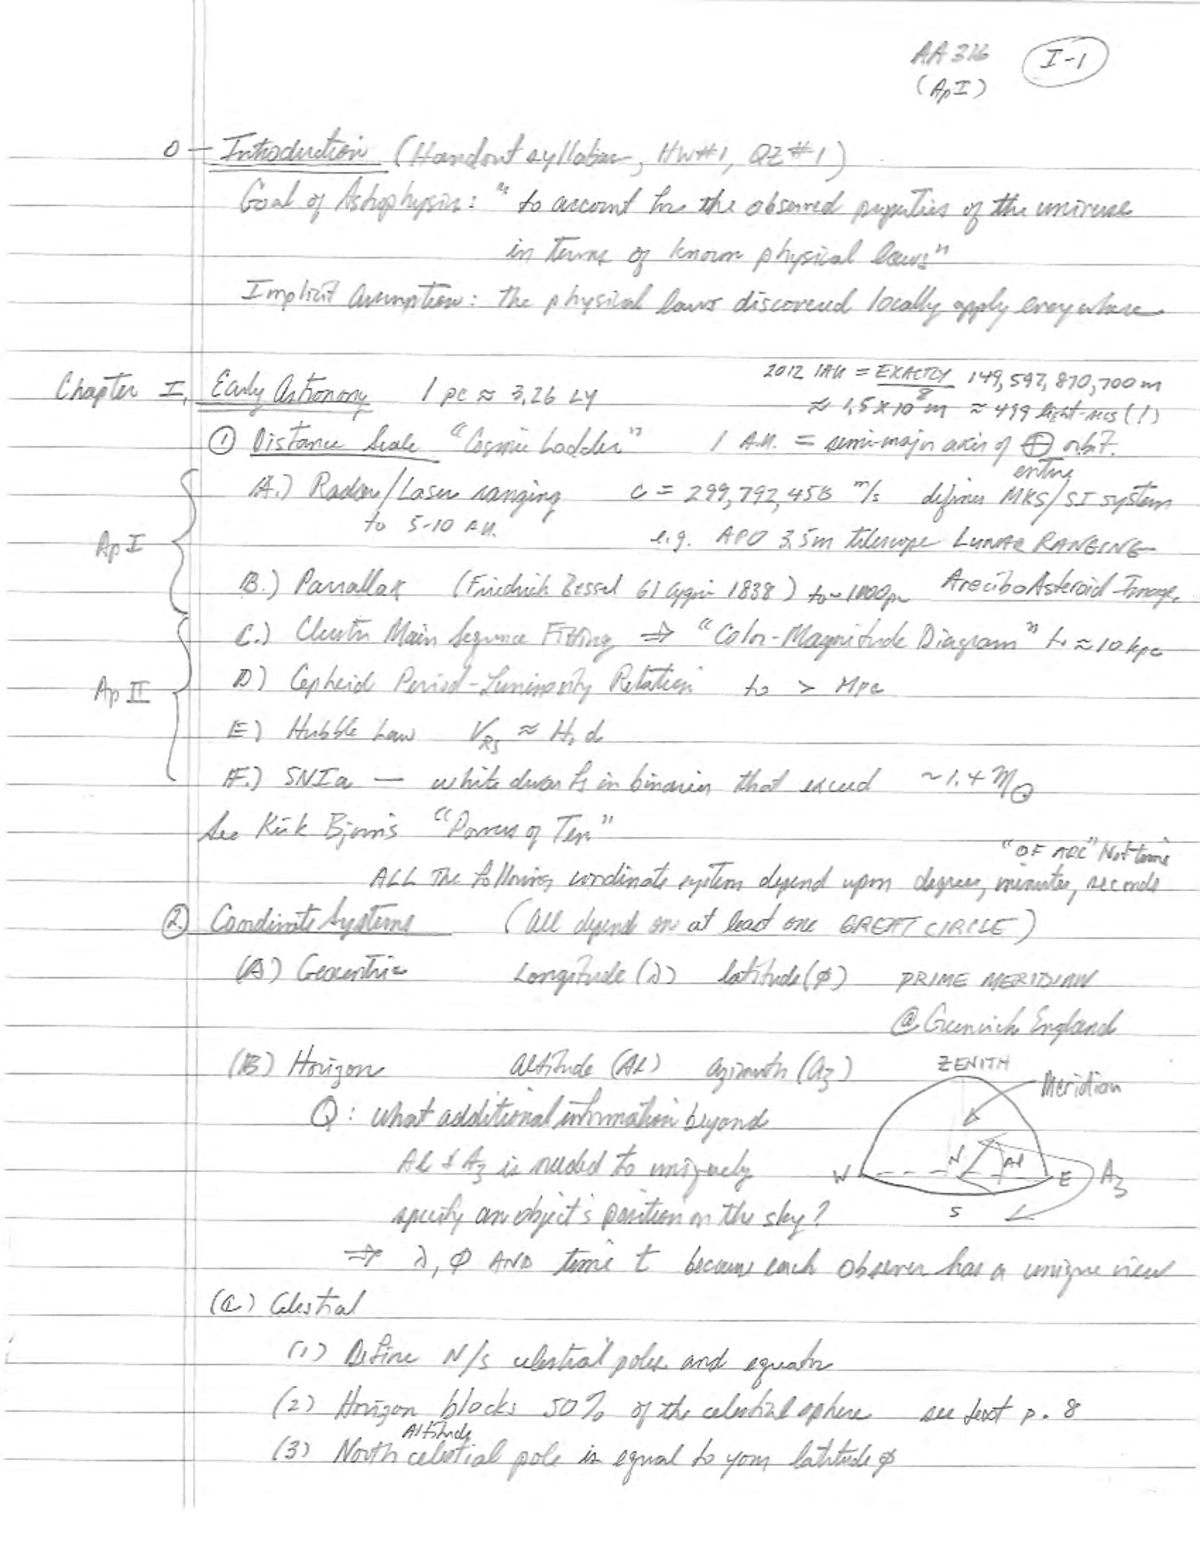 AA 316 I-1
(Ap I)
0 - Introduction (Handout syllabus, HW#1, QZ#1)
Goal of Astrophysics: "to account for the observed properties of the universe
in terms of known physical laws"
Implicit Assumption: the physical laws discovered locally apply everywhere
2012 IAU = EXACTLY 149,597,870,700 m
Chapter I. Early Astronomy 1 pc ≈ 3.26 LY
≈ 1.5 x 10^8 m ≈ 499 light-secs (!)
① Distance Scale "Cosmic Ladder" 1 A.U. = semi-major axis of ⊕ orbit.
A.) Radar/Laser ranging c = 299,792,458 m/s defines entire MKS/SI system
to 5-10 AU.
Ap I e.g. APO 3.5m telescope LUNAR RANGING
B.) Parrallax (Friedrich Bessel 61 Cygni 1838) to ~ 1000pc Arecibo Asteroid Image
C.) Cluster Main Sequence Fitting ⇒ "Color-Magnitude Diagram" to ≈ 10 kpc
Ap II D) Cepheid Period-Luminosity Relation to > Mpc
E) Hubble Law V_RS ≈ H₀ d
F.) SNIa — white dwarfs in binaries that exceed ~1.4 M⊙
See Kirk "Powers of Ten"
"OF ARC" Not time
ALL the following coordinate system depend upon degrees, minutes, seconds
② Coordinate Systems (all depend on at least one GREAT CIRCLE)
(A) Geocentric Longitude (λ) latitude (φ) PRIME MERIDIAN
@ Greenwich England
(B) Horizon Altitude (Al) azimuth (az)
ZENITH
Meridian
Q: what additional information beyond
Al & Az is needed to uniquely
W N Al E Az
specify an object's position on the sky?
S
⇒ λ, φ AND time t because each observer has a unique view
(C) Celestial
(1) Define N/S celestial poles and equator
(2) Horizon blocks 50% of the celestial sphere see text p. 8
Altitude
(3) North celestial pole is equal to your latitude φ